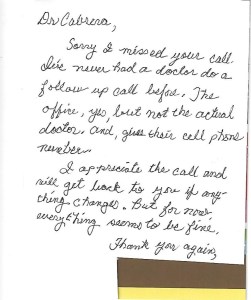 Dr Cabrera,
Sorry I missed your call
I've never had a doctor do a
follow up call before. The
office, yes, but not the actual
doctor. And, give their cell phone
number.
I appreciate the call and
will get back to you if any-
thing changes. But for now,
everything seems to be fine.
Thank you again,